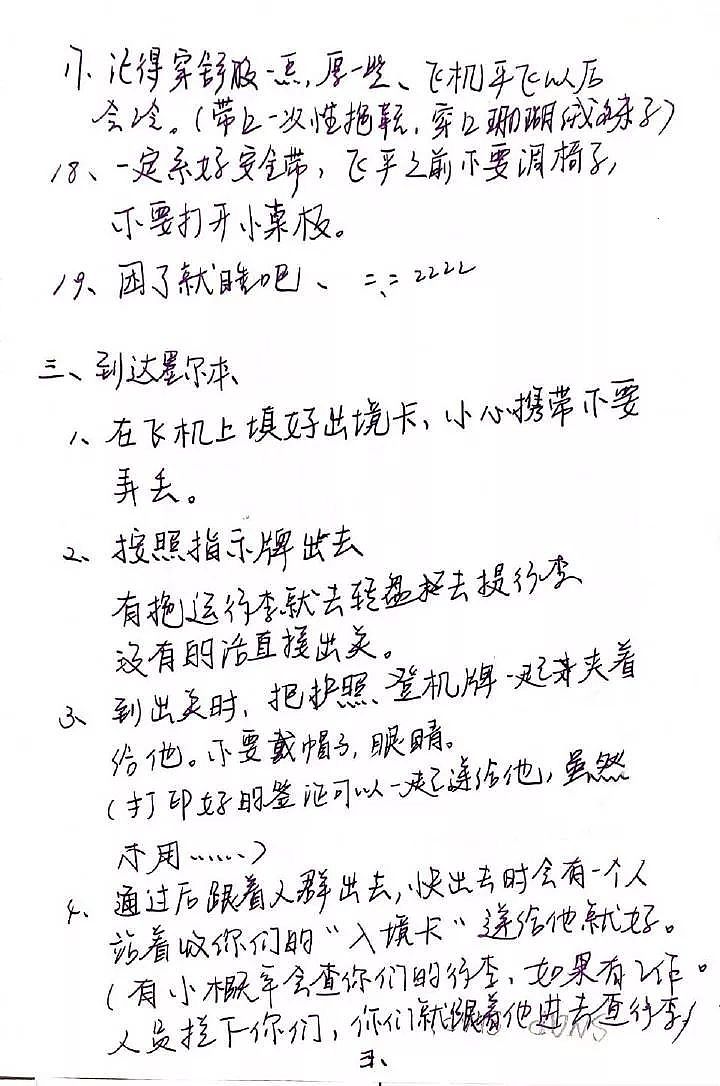 17、记得穿舒服一点,厚一些、飞机平飞以后
会冷。(带上一次性拖鞋,穿上珊瑚绒的袜子)
18、一定系好安全带,飞平之前不要调椅子,
不要打开小桌板。
19、困了就睡吧、=、= zzzz
三、到达墨尔本、
1、在飞机上填好出境卡,小心携带不要
弄丢。
2、按照指示牌出去
有拖运行李就去转盘提行李
没有的话直接出关。
3、到出关时,把护照、登机牌一起夹着
给他。不要戴帽子,眼睛。
(打印好的签证可以一起递给他,虽然
不用……)
4、通过后跟着人群出去,快出去时会有一个人
站着收你们的“入境卡”递给他就好。
(有小概率会查你们的行李,如果有工作。
人员拦下你们,你们就跟着他进去查行李)